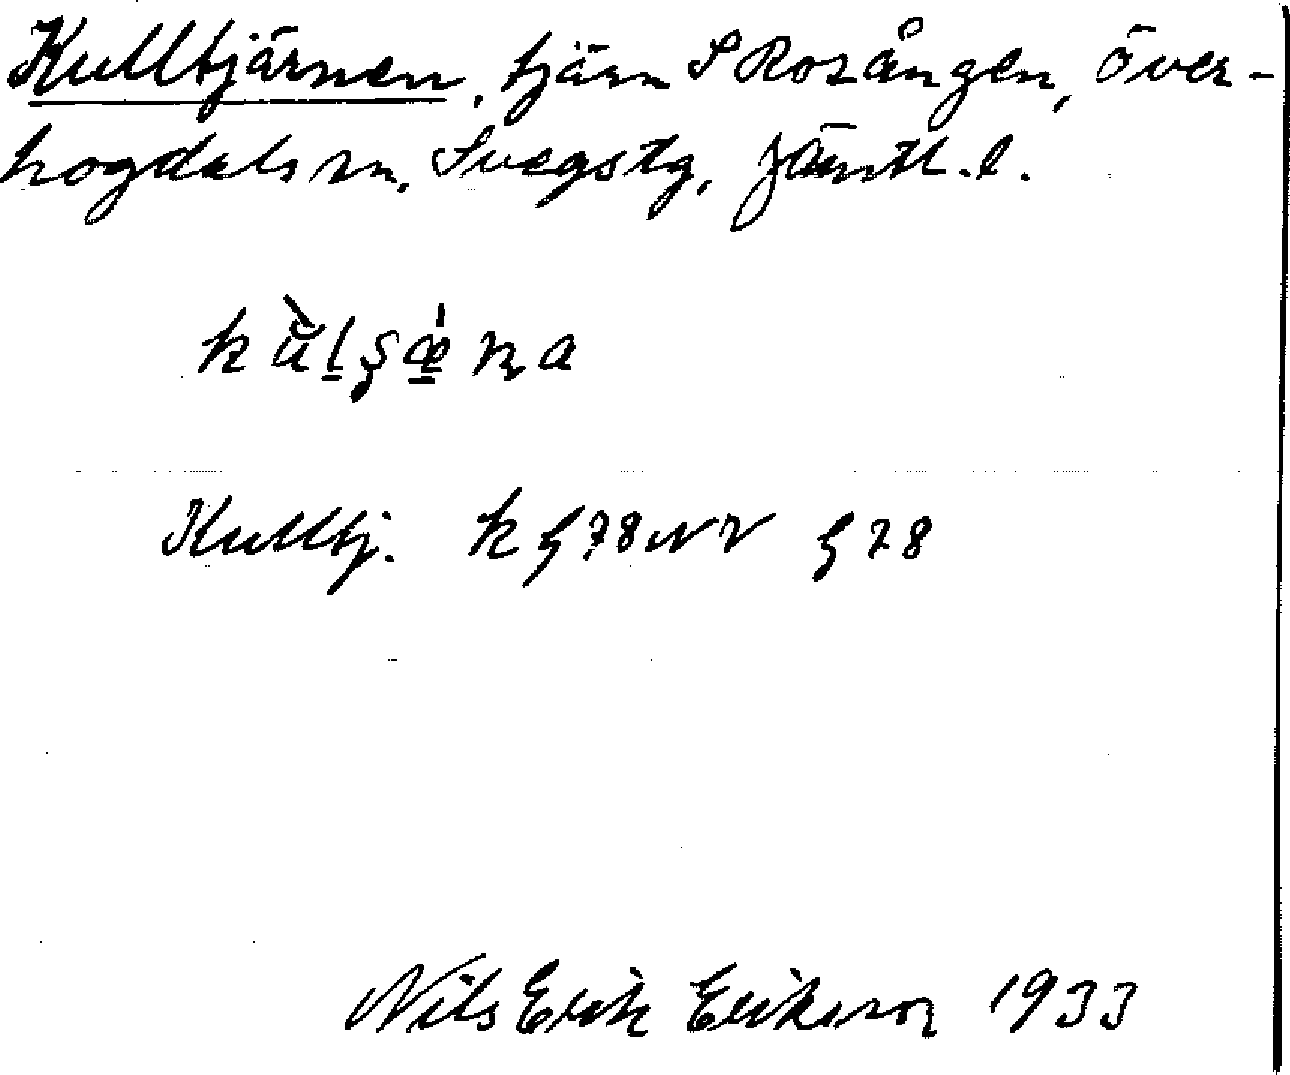 Kulltjärnen, tjärn S Rosången, Över-
hogdals sn, Svegs tg, Jämtl. l.
Kulltj.
Nils Erik Eriksson 1933